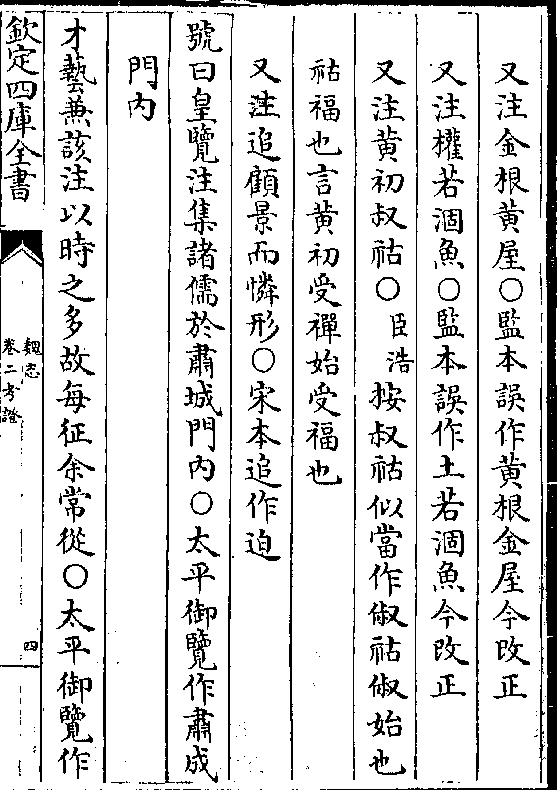 又注金根黄屋○監本誤作黄根金屋今改正
又注權若涸魚○監本誤作土若涸魚今改正
又注黄初叔祜○臣浩按叔祜似當作俶祜俶始也
祜福也言黄初受禪始受福也
又注追顧景而憐形○宋本追作迫
號曰皇覽注集諸儒於肅城門内○太平御覽作肅成
門内
才藝兼該注以時之多故每征余常從○太平御覽作
欽定四庫全書
魏志
卷二考證
四